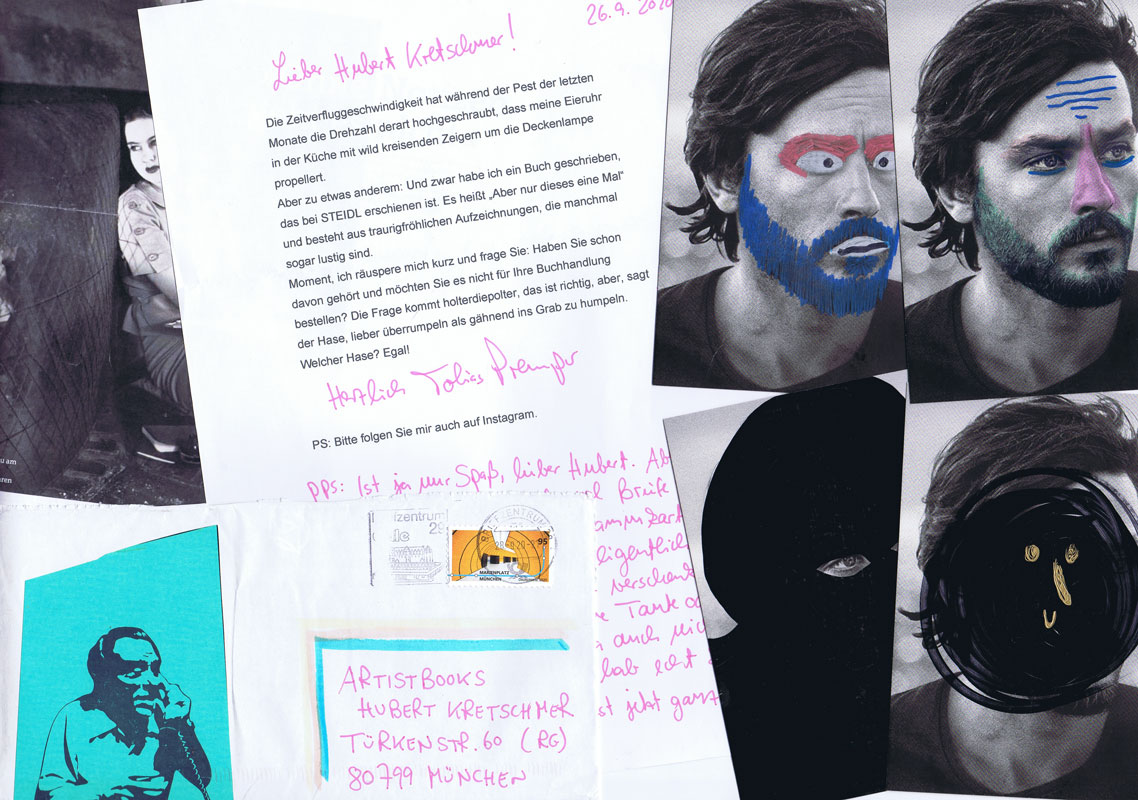 26.9.2020
Lieber Hubert Kretschmer!
Die Zeitverfluggeschwindigkeit hat während der Pest der letzten
Monate die Drehzahl derart hochgeschraubt, dass meine Eieruhr
in der Küche mit wild kreisenden Zeigern um die Deckenlampe
propellert.
Aber zu etwas anderem: Und zwar habe ich ein Buch geschrieben,
das bei STEIDL erschienen ist. Es heißt „Aber nur dieses eine Mal"
und besteht aus traurigfröhlichen Aufzeichnungen, die manchmal
sogar lustig sind.
Moment, ich räuspere mich kurz und frage Sie: Haben Sie schon
davon gehört und möchten Sie es nicht für Ihre Buchhandlung
bestellen? Die Frage kommt holterdiepolter, das ist richtig, aber, sagt
der Hase, lieber überrumpeln als gähnend ins Grab zu humpeln.
Welcher Hase? Egal!
Herzlich Tobias Premper
PS: Bitte folgen Sie mir auch auf Instagram.
pps: Ist ja nur Spaß, lieber Hubert. Ab
Briefe
eigentlich
verschent
Tante
auch
hab echt
st jetzt ganz
u am
ren
zentrum
29
BRIEFZENTRUM
95
MARIENPLATZ
MÜNCHEN
ARTISTBOOKS
HUBERT KRETSCHMER
TÜRKENSTR. 60 (RG)
80799 MÜNCHEN